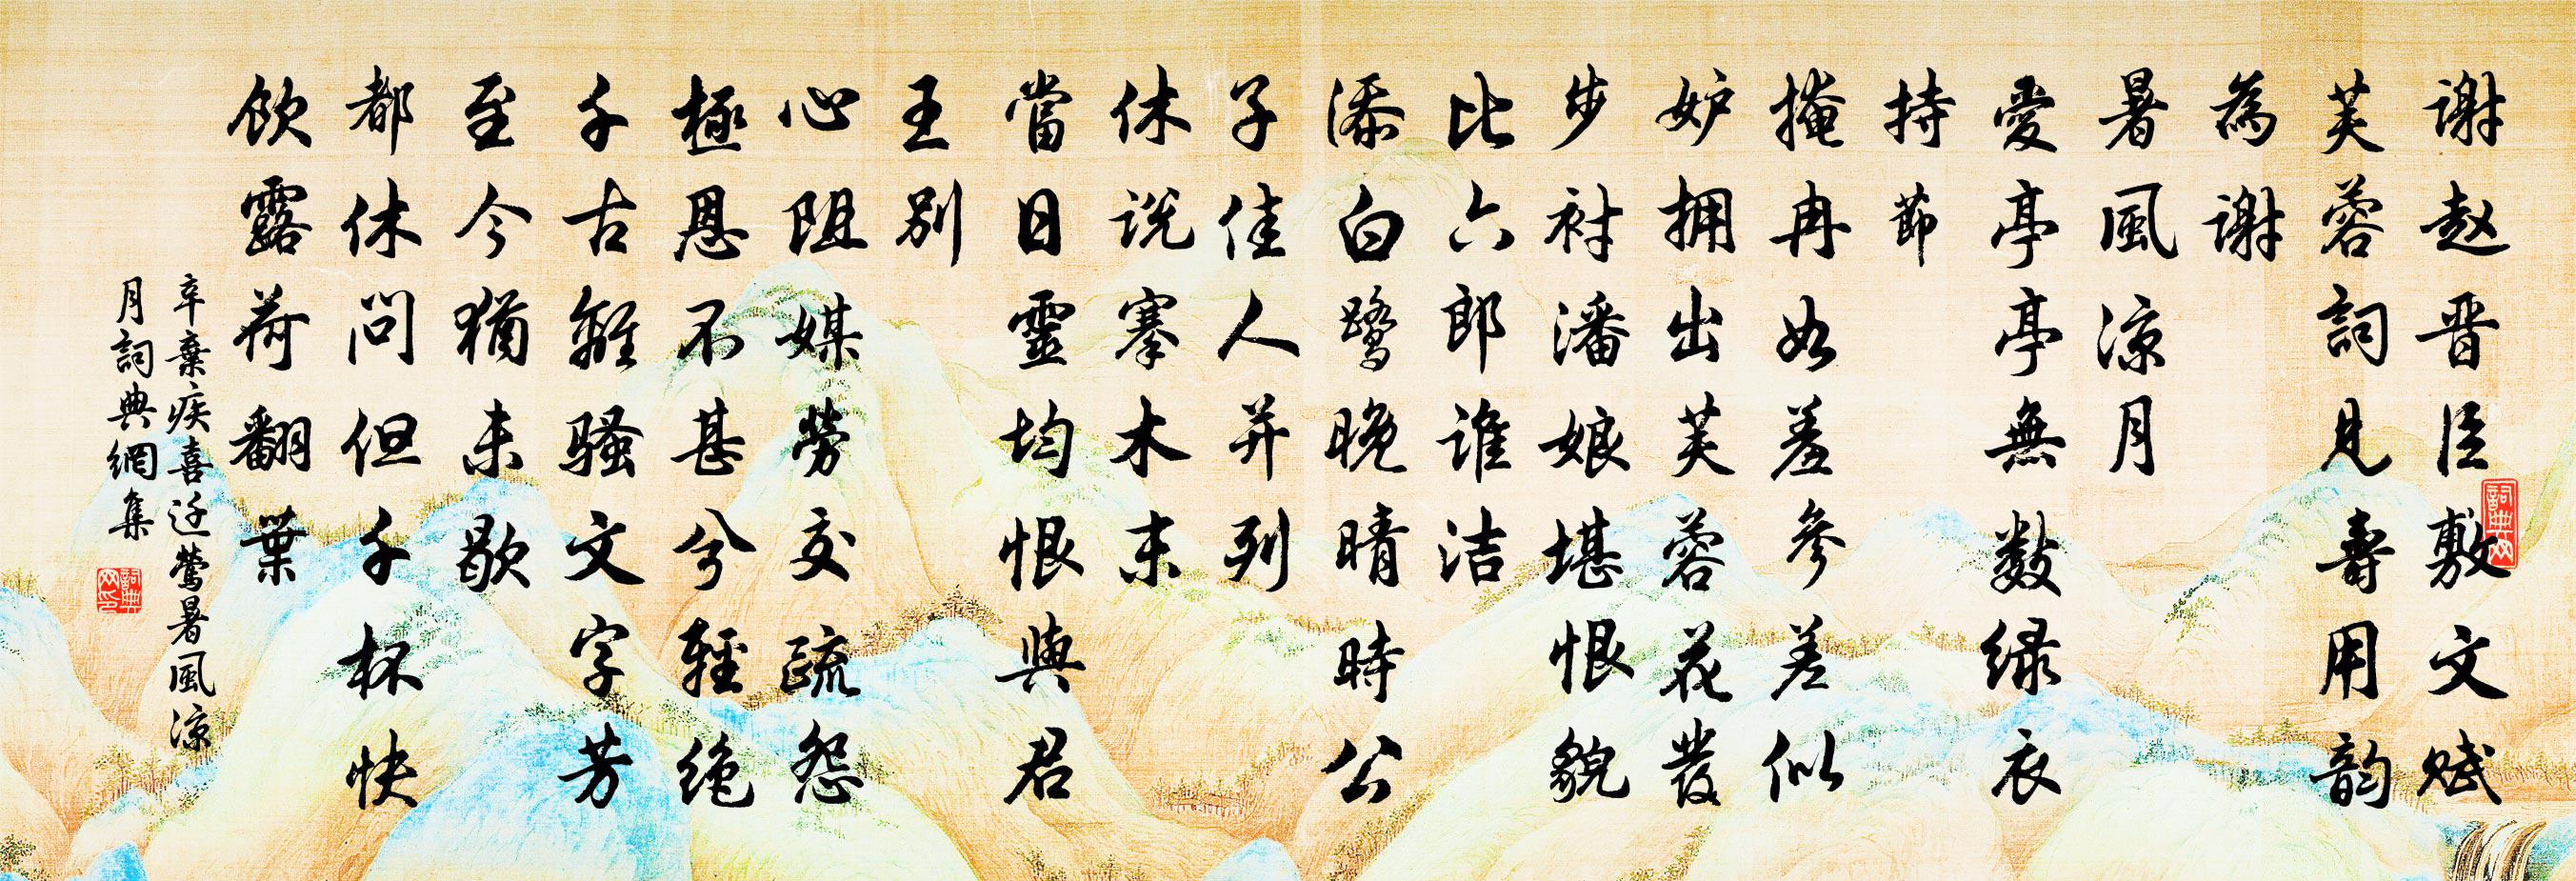 谢赵晋臣敷文赋
芙蓉詞見壽用韵
為谢
暑風凉月
愛亭亭無数绿衣
持節
掩冉如羞参差似
妒拥出芙蓉花發
步衬潘娘堪恨貌
比六郎谁洁
添白鹭晚晴時公
子佳人并列
休说搴木末
當日靈均恨與君
王别
心阻媒劳交疏怨
極恩不甚兮輕绝
千古離骚文字芳
至今猶未歇
都休问但千杯快
饮露荷翻葉
辛棄疾喜迁莺暑風凉
月詞典網集
詞典网
詞典网印